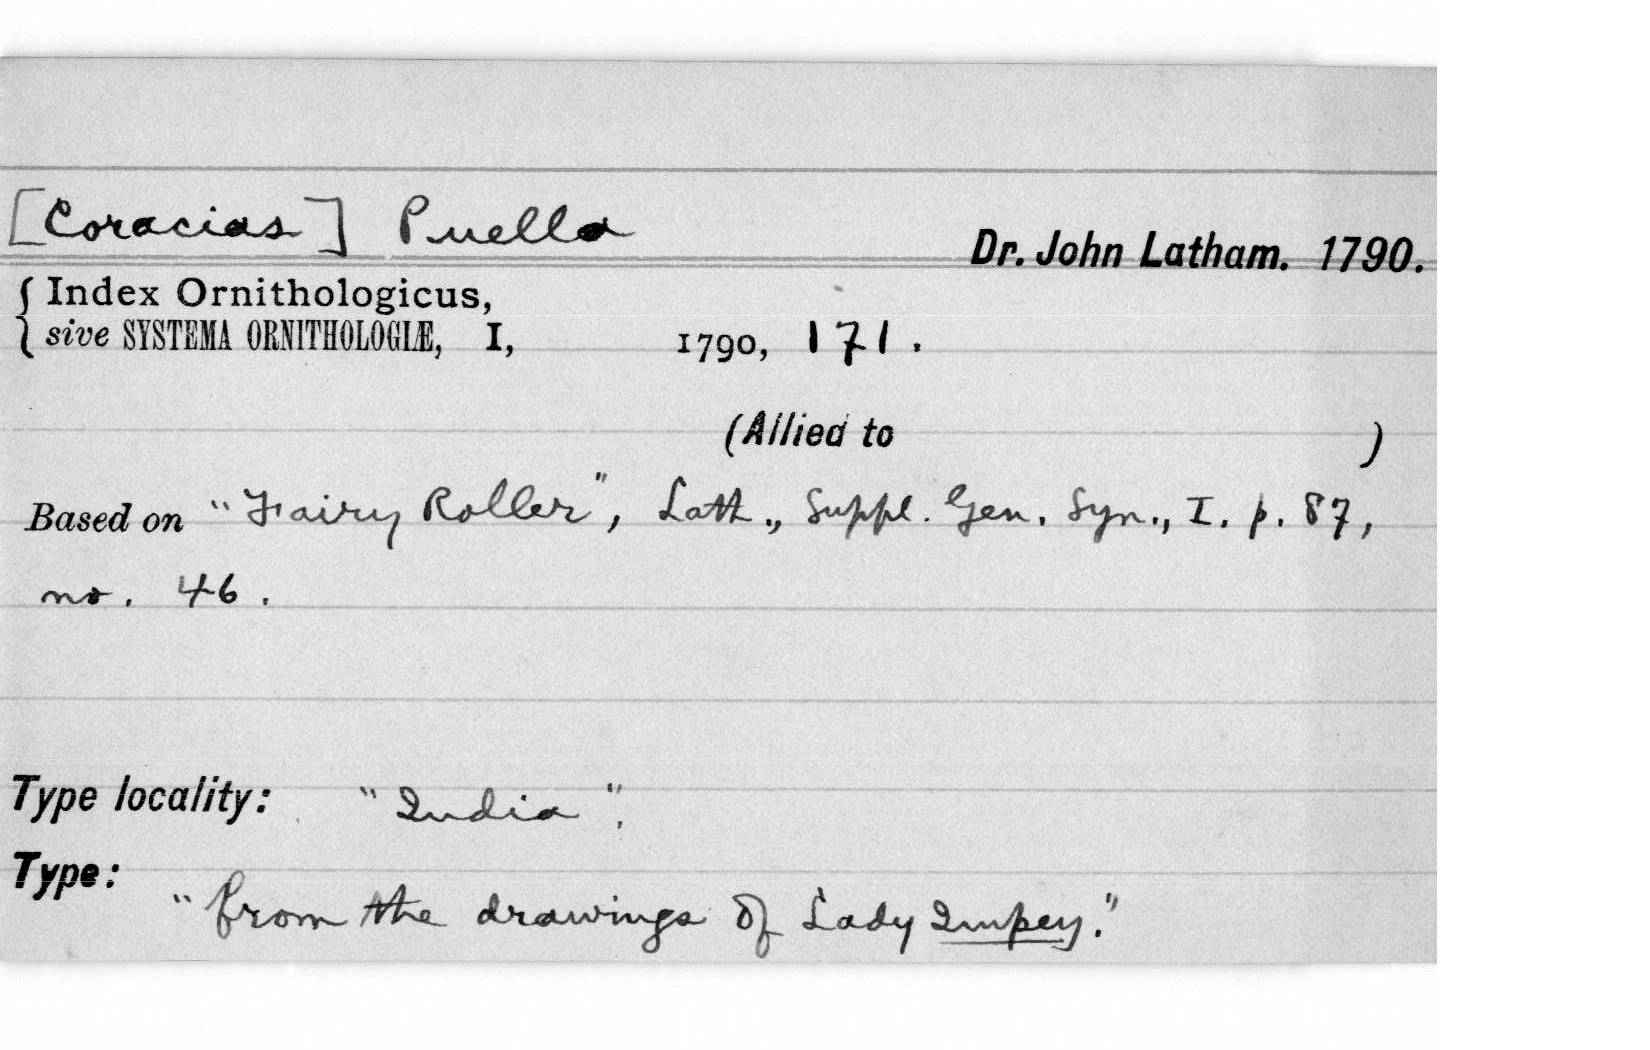 [Coracias] Puella
Dr. John Latham. 1790.
Index Ornithologicus,
sive SYSTEMA ORNITHOLOGIÆ, I, 1790, 171.
(Allied to )
Based on "Fairy Roller", Lath., Suppl. Gen. Syn., I. p. 87,
no. 46.
Type locality: "India".
Type:
"from the drawings of Lady Impey."